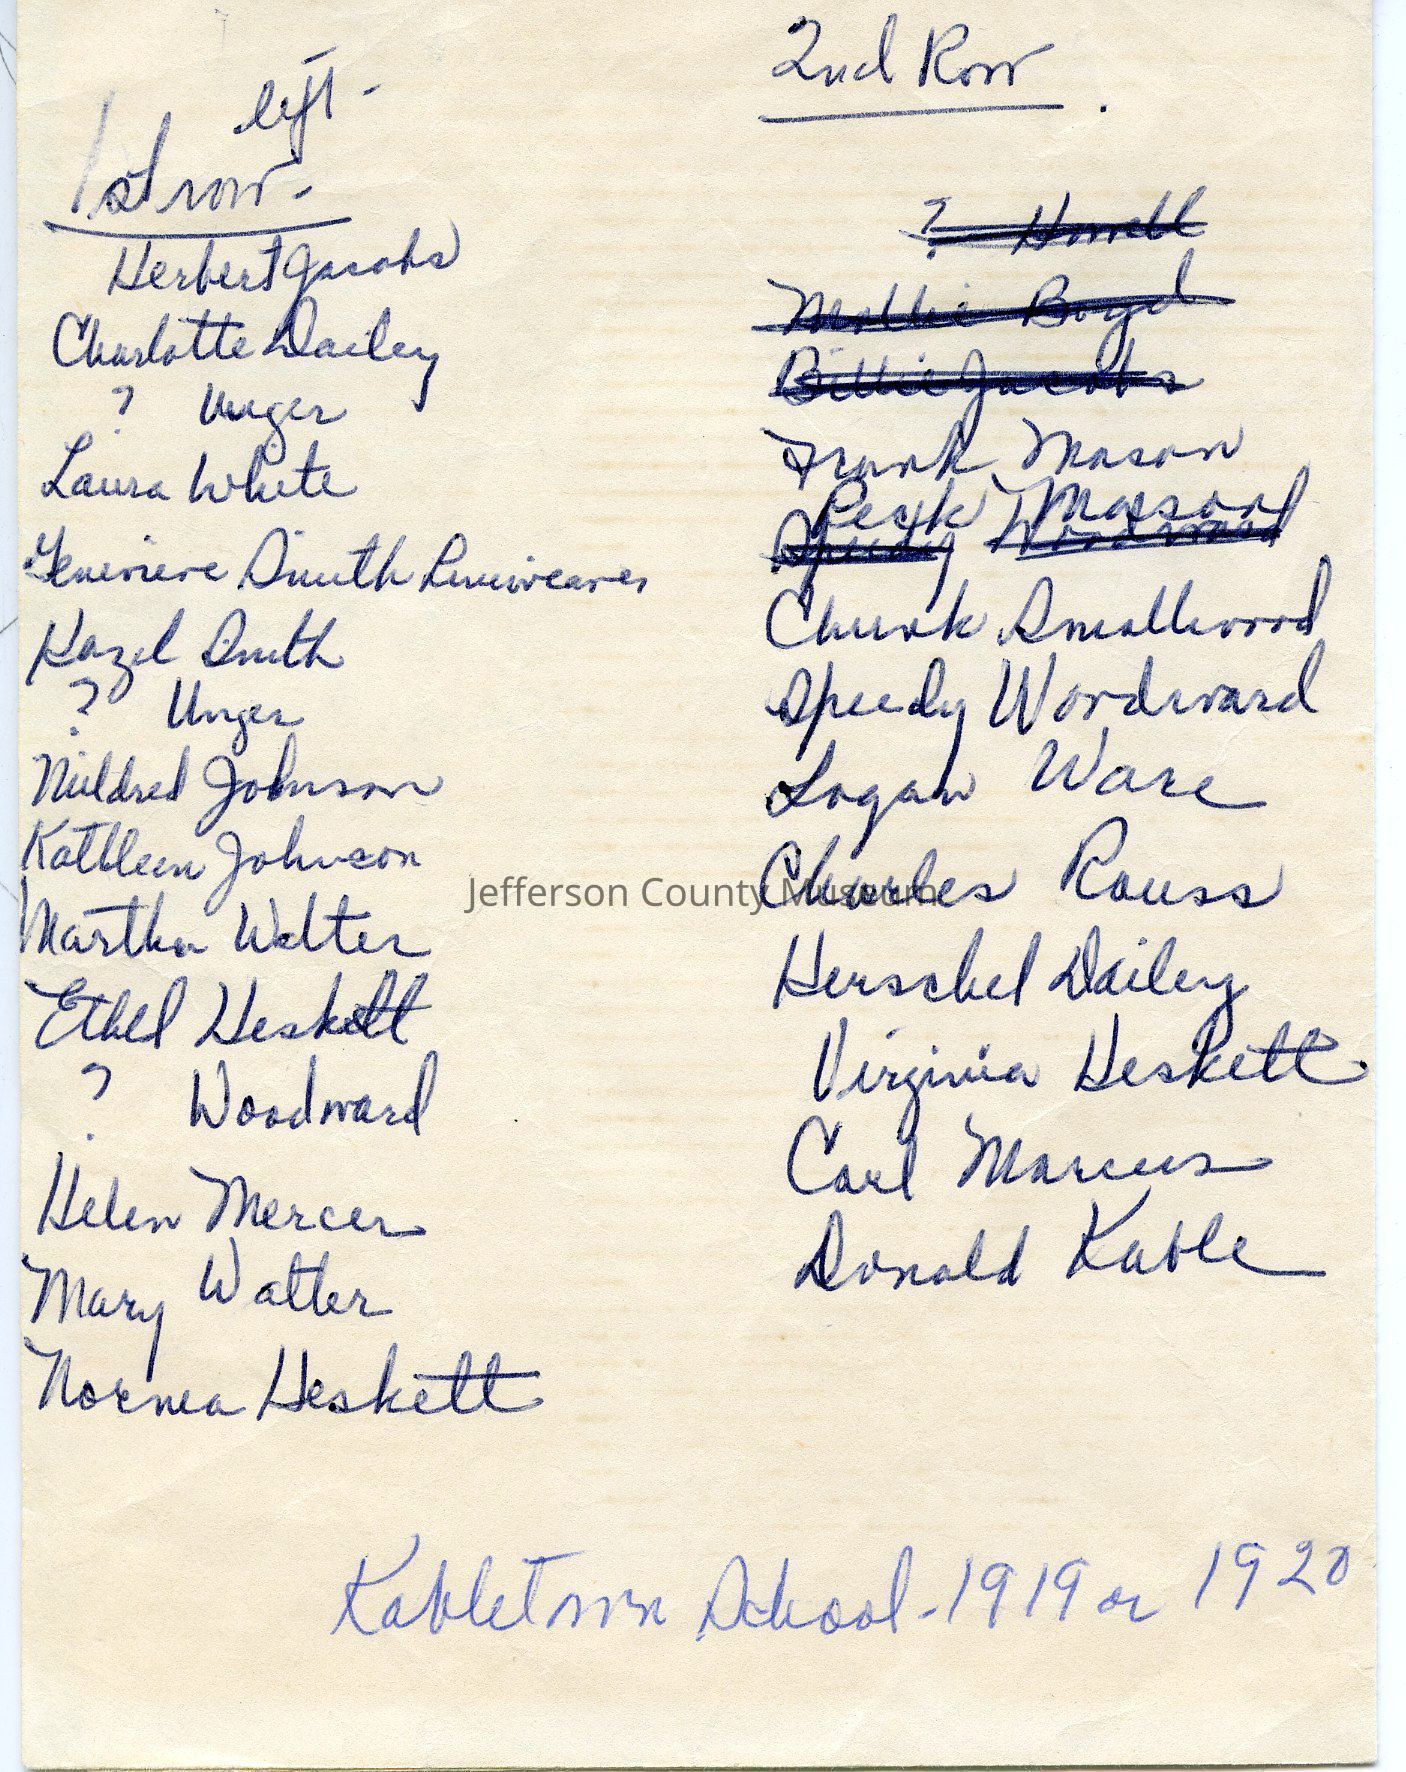 left -
1st row -
Herbert Jacobs
Charlotte Dailey
? Unger
Laura White
Genevieve Smith Linnweaver
Hazel Smith
? Unger
Mildred Johnson
Kathleen Johnson
Martha Walter
Ethel Heskett
? Woodward
Helen Mercer
Mary Walter
Norma Heskett
2nd Row
? Howell
Mollie Boyd
Billie Jacobs
Frank Mason
Peck Mason
Speedy Woodward
Chunk Smallwood
Speedy Woodward
Logan Ware
Charles Rouss
Herschel Dailey
Virginia Heskett
Carl Marcus
Donald Kable
Jefferson County Museum
Kabletown School - 1919 or 1920